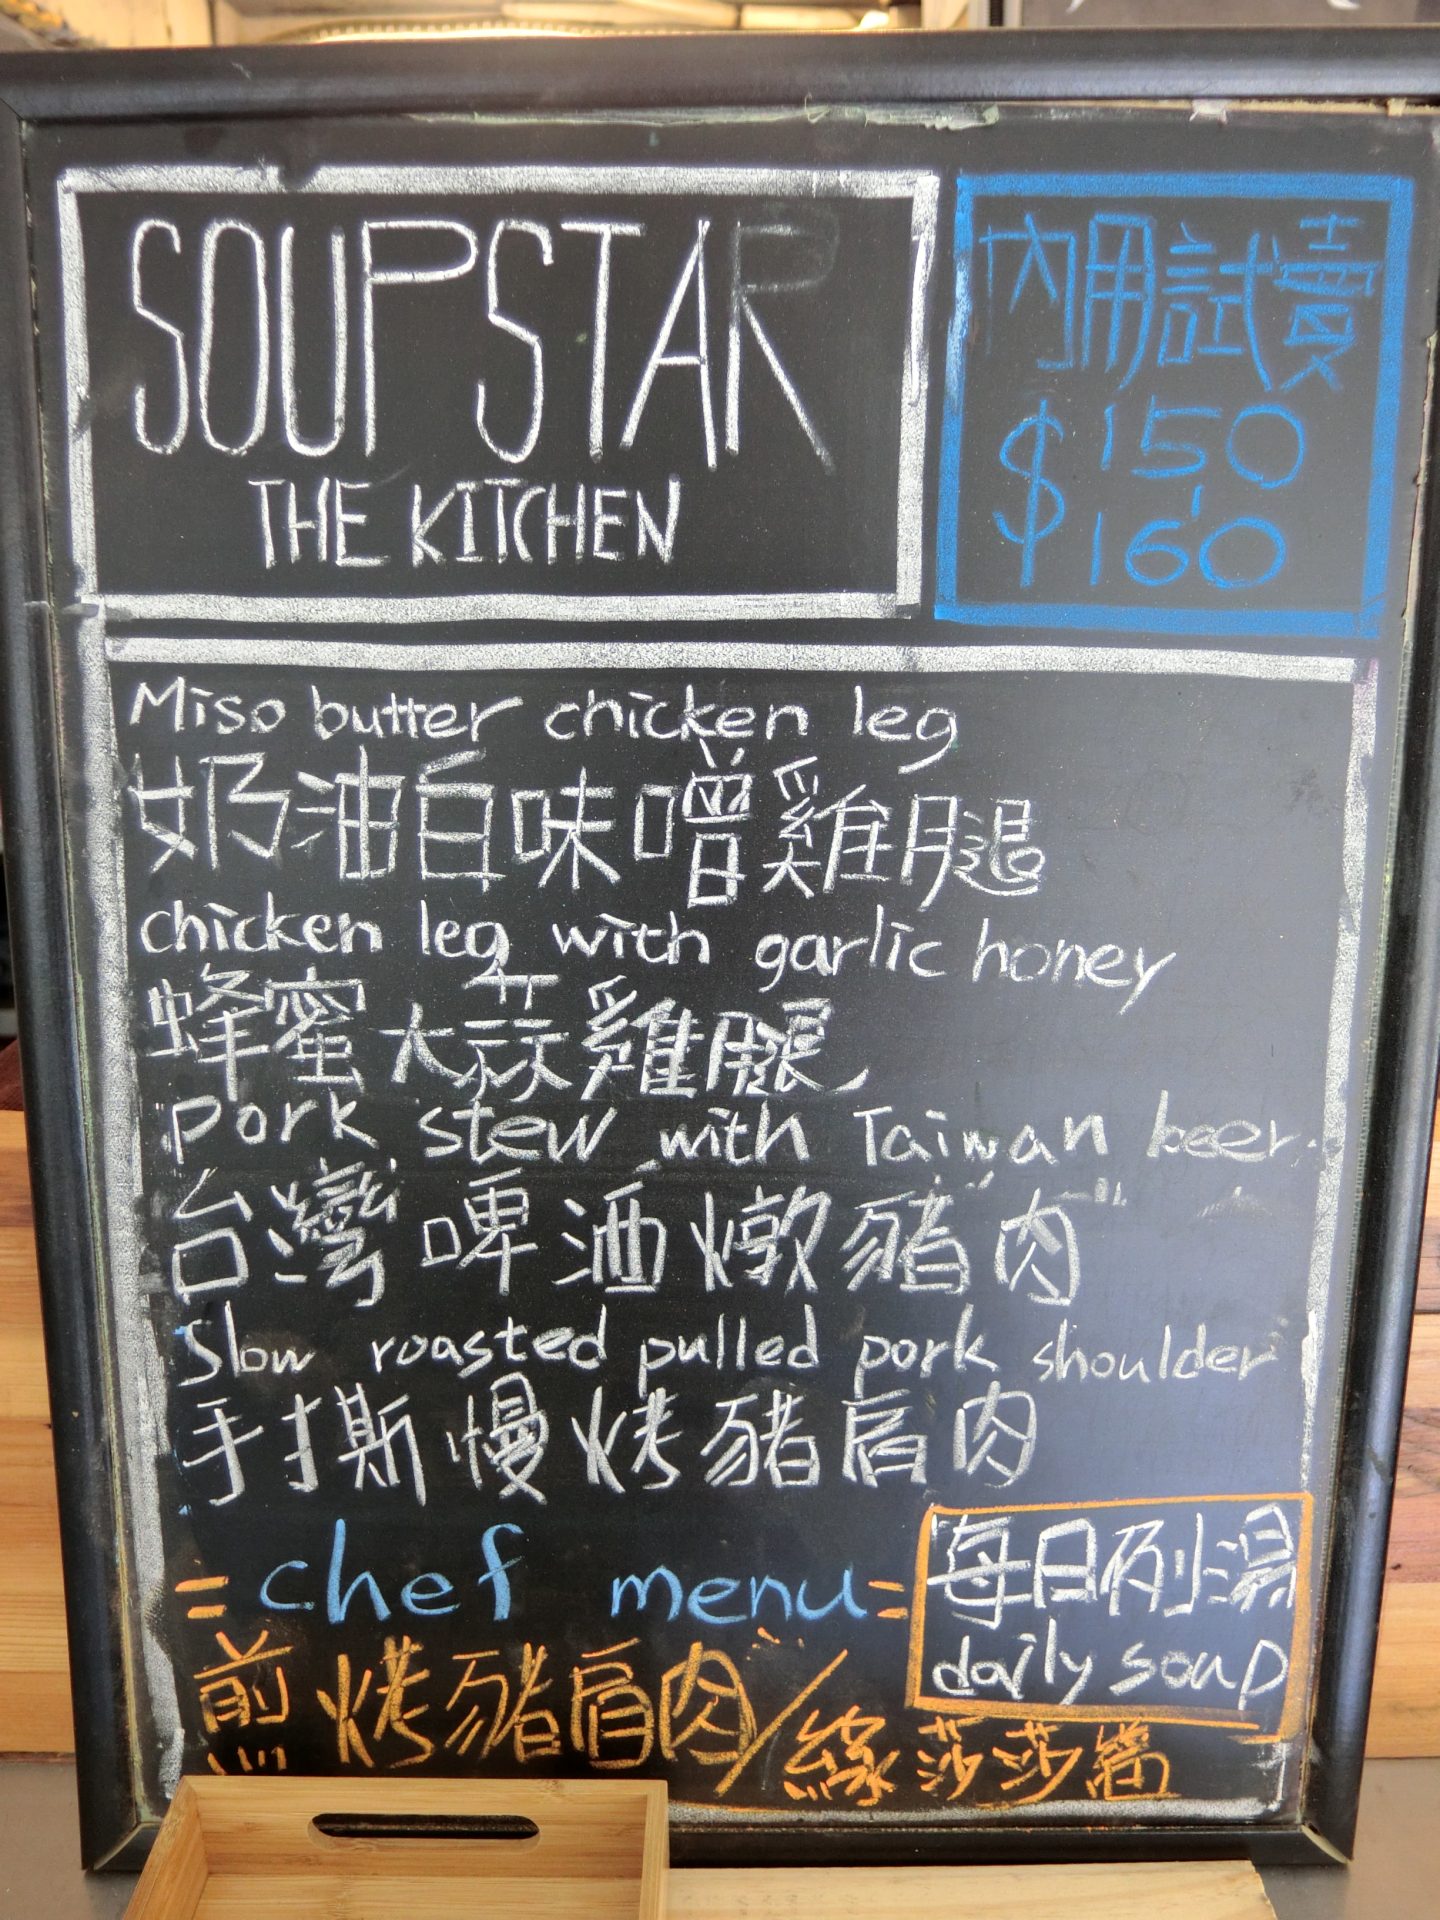 SOUP STAR
THE KITCHEN
內用試賣
$150
160
Miso butter chicken leg
奶油白味噌雞腿
chicken leg with garlic honey
蜂蜜大蒜雞腿
pork stew with Taiwan beer
台灣啤酒燉豬肉
Slow roasted pulled pork shoulder
手撕慢烤豬肩肉
= chef menu =
每日例湯
daily soup
煎烤豬肩肉/綠莎莎醬